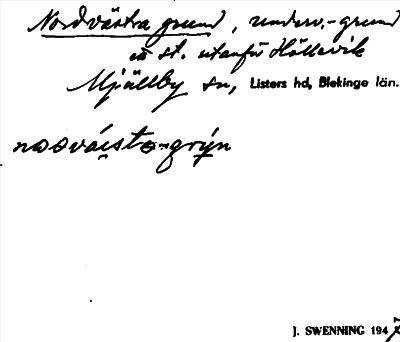 Nordvästra grund, underv.-grund
st. utanför Hällevik
Mjällby sn, Listers hd, Blekinge län.
J. SWENNING 1947